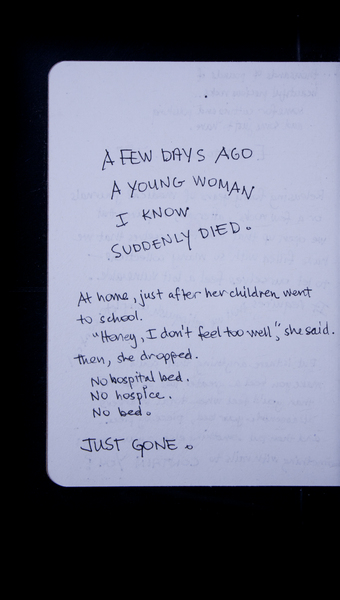 A FEW DAYS AGO
A YOUNG WOMAN
I KNOW
SUDDENLY DIED.
At home, just after her children went
to school.
"Honey, I don't feel too well," she said.
then, she dropped.
No hospital bed.
No hospice.
No bed.
JUST GONE.